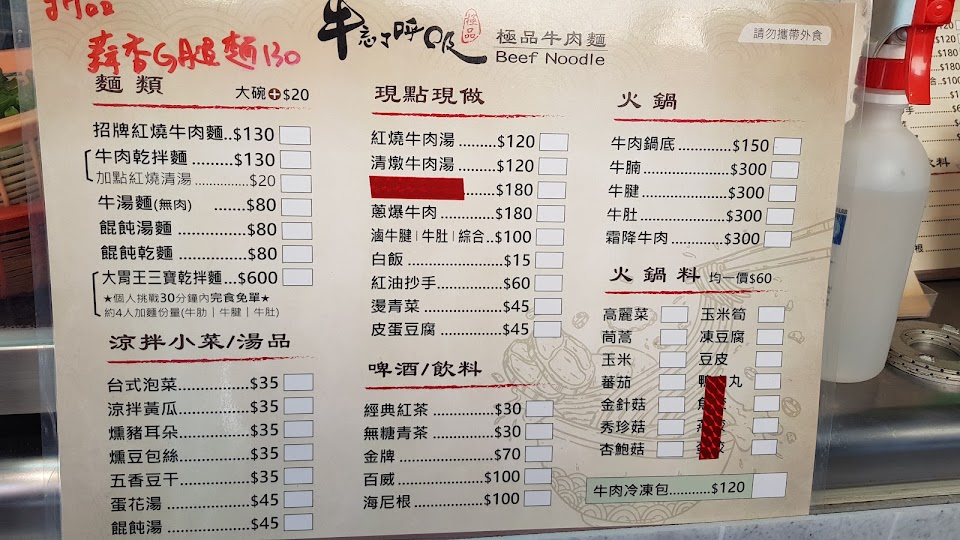 蒜香GAB麵130
牛忘了呼吸 極品
極品牛肉麵
Beef Noodle
請勿攜帶外食
麵類 大碗+$20
招牌紅燒牛肉麵..$130
牛肉乾拌麵.........$130
加點紅燒清湯...............$20
牛湯麵(無肉) .......$80
餛飩湯麵 .............$80
餛飩乾麵 .............$80
大胃王三寶乾拌麵...$600
★個人挑戰30分鐘內完食免單★
約4人加麵份量(牛肋|牛腱|牛肚)
涼拌小菜/湯品
台式泡菜...............$35
涼拌黃瓜...............$35
燻豬耳朵...............$35
燻豆包絲...............$35
五香豆干...............$35
蛋花湯 .................$45
餛飩湯 .................$45
現點現做
紅燒牛肉湯.........$120
清燉牛肉湯.........$120
......$180
蔥爆牛肉............$180
滷牛腱|牛肚|綜合..$100
白飯 ....................$15
紅油抄手..............$60
燙青菜 .................$45
皮蛋豆腐..............$45
啤酒/飲料
經典紅茶..............$30
無糖青茶..............$30
金牌 ....................$70
百威 ..................$100
海尼根................$100
火鍋
牛肉鍋底............$150
牛腩 ..................$300
牛腱 ..................$300
牛肚 ..................$300
霜降牛肉............$300
火鍋料 均一價$60
高麗菜 玉米筍
茼蒿 凍豆腐
玉米 豆皮
蕃茄 鴨 丸
金針菇
秀珍菇
杏鮑菇
牛肉冷凍包...........$120